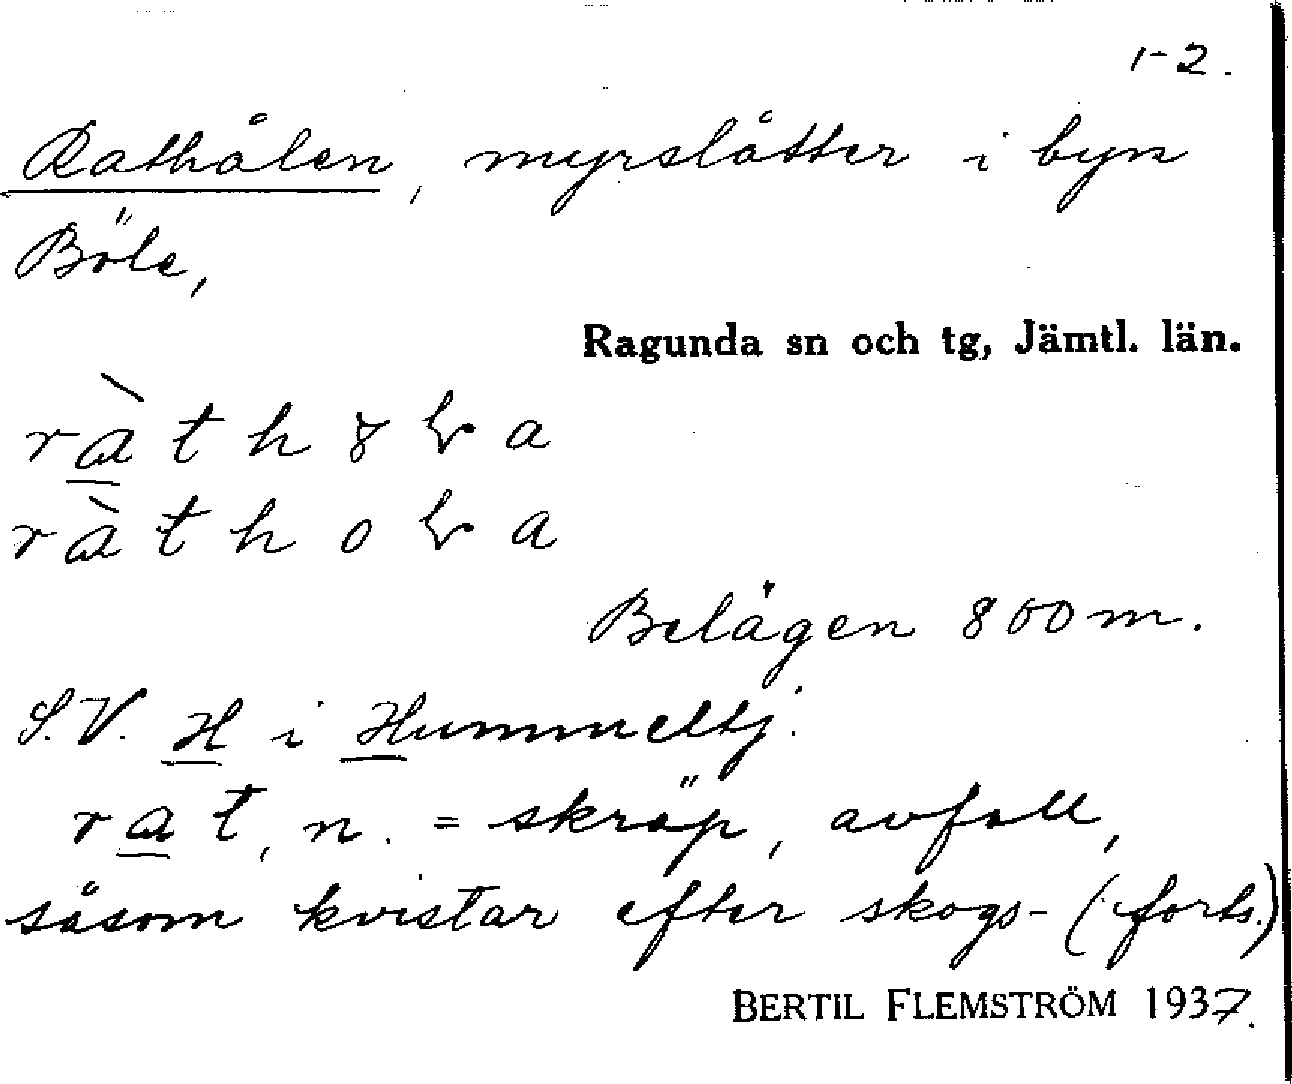 1-2.
Rathålen, myrslåtter i byn
Böle,
Ragunda sn och tg, Jämtl. län.
S.V. H i Hummeltj.
rat, n. = skräp, avfall,
såsom kvistar efter skogs- (forts.)
Belägen 800 m.
BERTIL FLEMSTRÖM 1937.